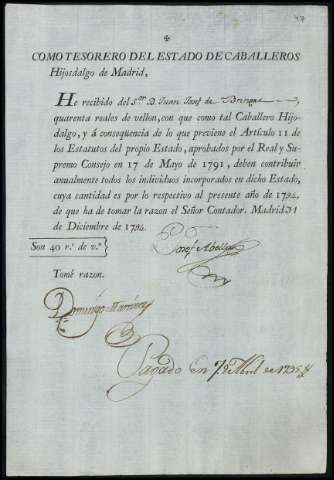 47
✠
COMO TESORERO DEL ESTADO DE CABALLEROS
Hijosdalgo de Madrid,
He recibido del S.or D. Juan Josef de
quarenta reales de vellon, con que como tal Caballero Hijo-
dalgo, y á conseqüencia de lo que previene el Artículo 11 de
los Estatutos del propio Estado, aprobados por el Real y Su-
premo Consejo en 17 de Mayo de 1791, deben contribuir
anualmente todos los individuos incorporados en dicho Estado,
cuya cantidad es por lo respectivo al presente año de 1794,
de que ha de tomar la razon el Señor Contador. Madrid 31
de Diciembre de 1794.
Son 40 r.s de v.n
Josef Abellan
Tomé razon.
Domingo Martinez
Pagado en 7 de Abril de 1795